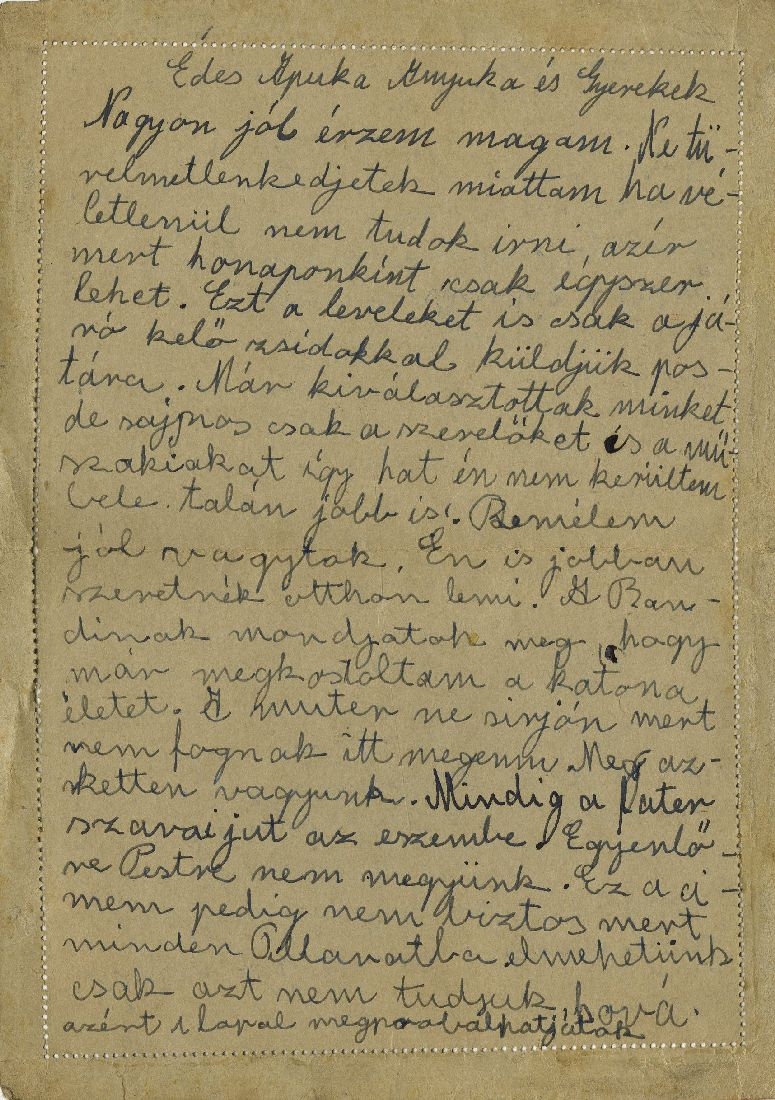 Édes Apuka Anyuka és Gyerekek
Nagyon jól érzem magam. Ne tü-
relmetlenkedjetek miattam ha vé-
letlenül nem tudok irni azér
mert honaponkint csak égyszer
lehet. Ezt a leveleket is csak a já-
ró kelő zsidokkal küldjük pos-
tára. Már kiválasztottak minket
de sajnos csak a szerelőket és a mű-
szakiakat így hat én nem kerültem
bele talán jobb is. Remélem
jól vagytok. Én is jobban
szeretnék otthon lenni. A Ban-
dinak mondjatok meg hogy
már megkostoltam a katona
életet. A muter ne sirjón mert
nem fognak itt megenni Meg az-
ketten vagyunk. Mindig a fater
szavai jut az eszembe. Egyenlő-
re Pestre nem megyünk. Ez a ci-
mem pedig nem biztos mert
minden Pillanatba elmehetünk
csak azt nem tudjuk hová.
azért 1 lapal megproobálhatjátok